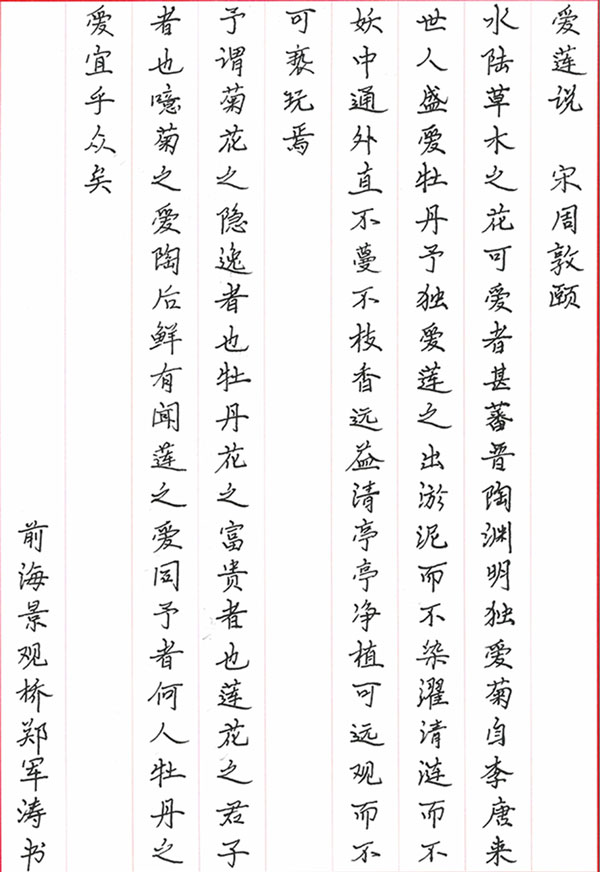 爱莲说 宋周敦颐
水陆草木之花可爱者甚蕃晋陶渊明独爱菊自李唐来
世人盛爱牡丹予独爱莲之出淤泥而不染濯清涟而不
妖中通外直不蔓不枝香远益清亭亭净植可远观而不
可亵玩焉
予谓菊花之隐逸者也牡丹花之富贵者也莲花之君子
者也噫菊之爱陶后鲜有闻莲之爱同予者何人牡丹之
爱宜乎众矣
前海景观桥郑军涛书